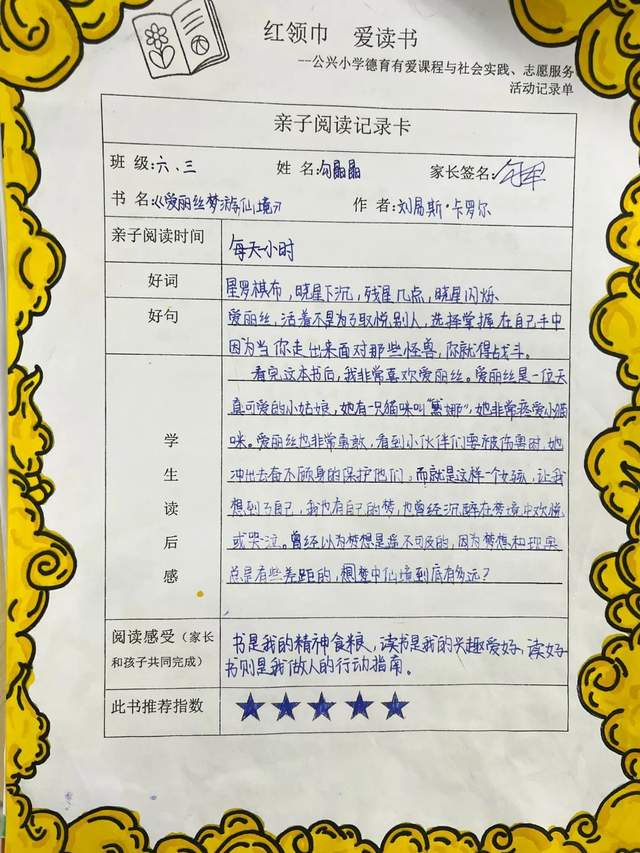 红领巾 爱读书
---公兴小学德育有爱课程与社会实践、志愿服务
活动记录单
亲子阅读记录卡
班 级:六、三 姓 名:勾晶晶 家长签名:
书 名:《爱丽丝梦游仙境》 作 者:刘易斯·卡罗尔
亲子阅读时间 每天小时
好词 星罗棋布,晓星下沉,残星几点,晓星闪烁
好句 爱丽丝,活着不是为了取悦别人,选择掌握在自己手中
因为当你走出来面对那些怪兽,你就得战斗。
学生读后感
看完这本书后,我非常喜欢爱丽丝。爱丽丝是一位天
真可爱的小姑娘,她有一只猫咪叫“黛娜”,她非常疼爱小猫
咪。爱丽丝也非常勇敢,看到小伙伴们要被伤害时,她
冲出去奋不顾身的保护他们,而就是这样一个女孩,让我
想到了自己,我也有自己的梦,也曾经沉醉在梦境中欢悦
或哭泣。曾经以为梦想是遥不可及的,因为梦想和现实
总是有些差距的,想梦中仙境到底有多远?
阅读感受(家长和孩子共同完成)
书是我的精神食粮,读书是我的兴趣爱好,读好
书则是我做人的行动指南。
此书推荐指数 ★★★★★